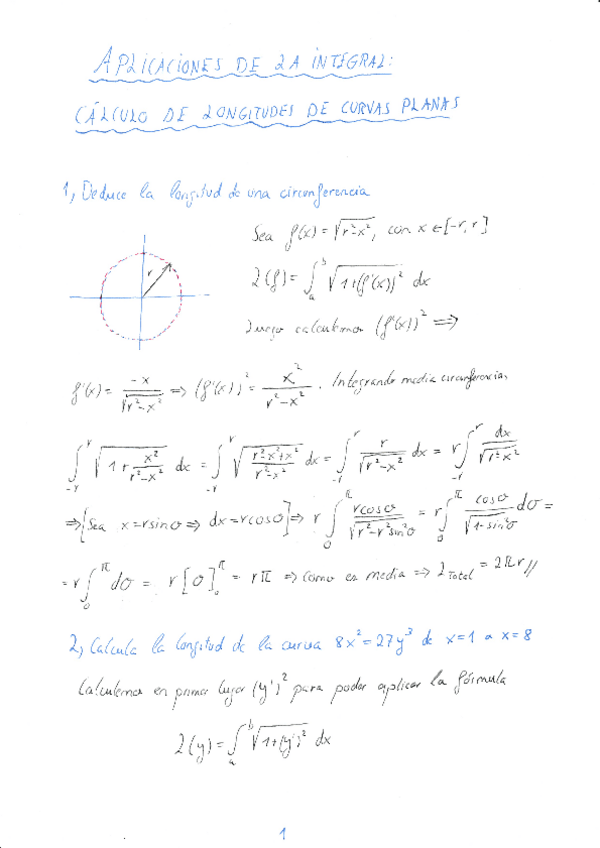 APLICACIONES DE LA INTEGRAL:
CÁLCULO DE LONGITUDES DE CURVAS PLANAS
1, Deduce la longitud de una circunferencia
Sea f(x) = √(r²-x²), con x ∈ [-r, r]
r
L(f) = ∫_a^b √(1+(f'(x))²) dx
Luego calculemos (f'(x))² ⟹
f'(x) = -x/√(r²-x²) ⟹ (f'(x))² = x²/(r²-x²). Integrando media circunferencia,
∫_{-r}^{r} √(1+x²/(r²-x²)) dx = ∫_{-r}^{r} √((r²-x²+x²)/(r²-x²)) dx = ∫_{-r}^{r} r/√(r²-x²) dx = r∫_{-r}^{r} dx/√(r²-x²)
⟹ [Sea x = r sin σ ⟹ dx = r cos σ] ⟹ r ∫_0^π r cos σ/√(r²-r² sin² σ) = r ∫_0^π cos σ/√(1-sin² σ) dσ =
= r ∫_0^π dσ = r [σ]_0^π = rπ ⟹ como es media ⟹ L_Total = 2πr //
2, Calcula la longitud de la curva 8x² = 27y³ de x=1 a x=8
Calculemos en primer lugar (y')² para poder aplicar la fórmula
L(y) = ∫_a^b √(1+(y')²) dx
1